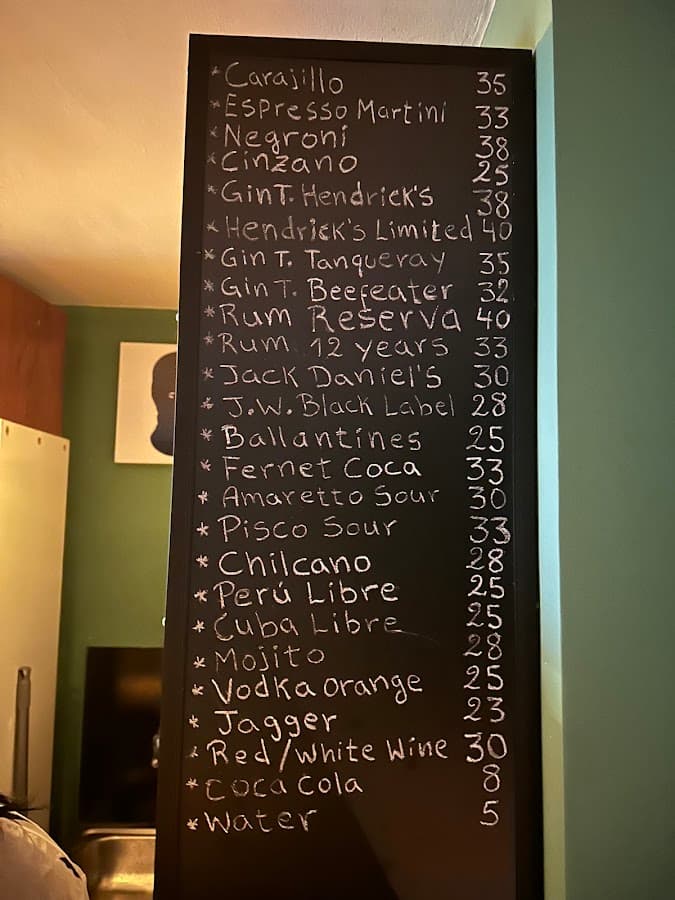 *Carajillo 35
*Espresso Martini 33
*Negroni 38
*Cinzano 25
*Gin T. Hendrick's 38
*Hendrick's Limited 40
*Gin T. Tanqueray 35
*Gin T. Beefeater 32
*Rum Reserva 40
*Rum 12 years 33
*Jack Daniel's 30
*J.W. Black Label 28
*Ballantines 25
*Fernet Coca 33
*Amaretto Sour 30
*Pisco Sour 33
*Chilcano 28
*Perú Libre 25
*Cuba Libre 25
*Mojito 28
*Vodka Orange 25
*Jagger 23
*Red/White Wine 30
*Coca Cola 8
*Water 5